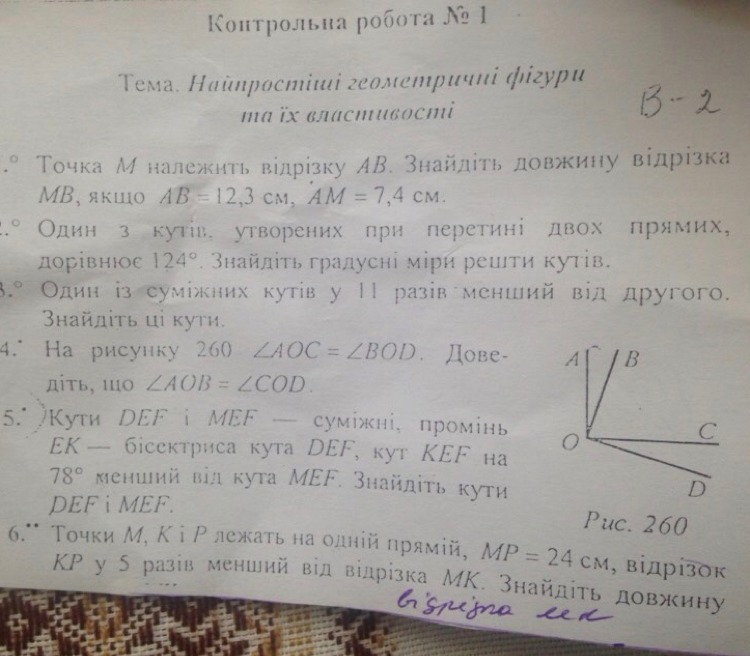 Контрольна робота № 1
Тема. Найпростіші геометричні фігури
та їх властивості
В-2
.° Точка M належить відрізку AB. Знайдіть довжину відрізка
MB, якщо AB = 12,3 см, AM = 7,4 см.
2.° Один з кутів, утворених при перетині двох прямих,
дорівнює 124°. Знайдіть градусні міри решти кутів.
3.° Один із суміжних кутів у 11 разів менший від другого.
Знайдіть ці кути.
4.• На рисунку 260 ∠AOC = ∠BOD. Дове-
діть, що ∠AOB = ∠COD.
5.• Кути DEF і MEF — суміжні, промінь
EK — бісектриса кута DEF, кут KEF на
78° менший від кута MEF. Знайдіть кути
DEF і MEF.
A B
O C
D
Рис. 260
6.•• Точки M, K і P лежать на одній прямій, MP = 24 см, відрізок
KP у 5 разів менший від відрізка MK. Знайдіть довжину
відрізка мк